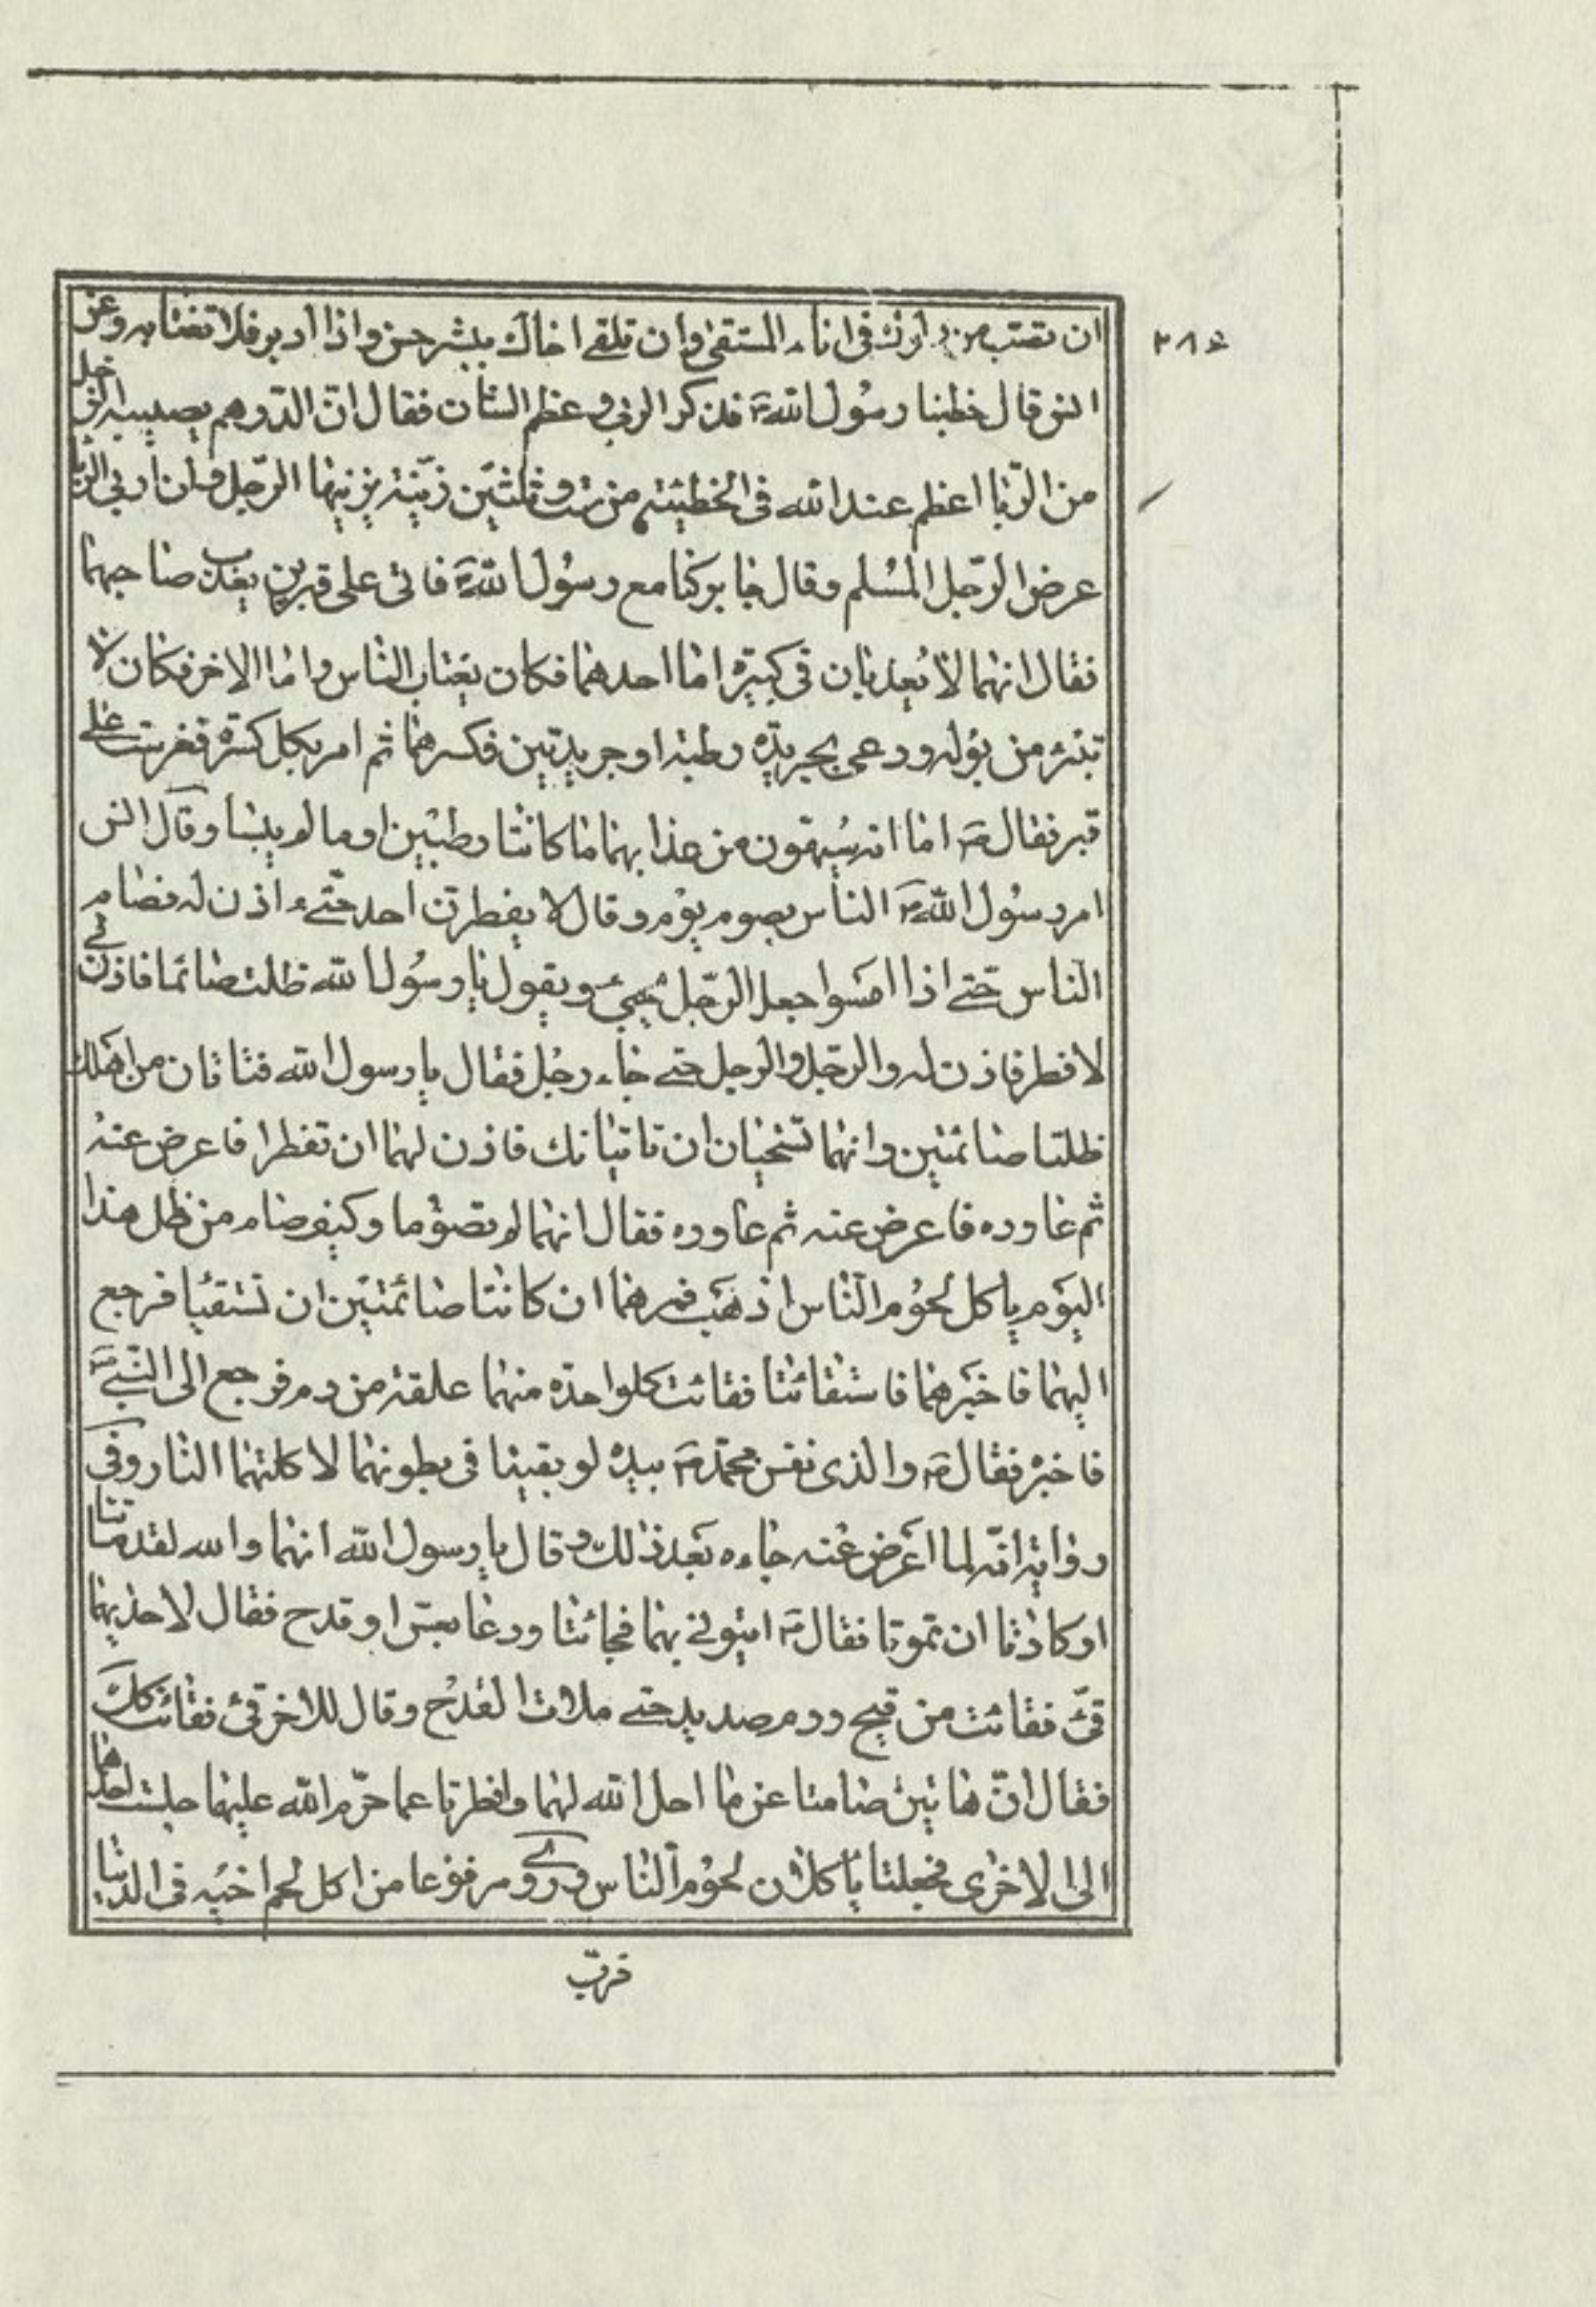 ان تصب من دلوك فى اناء المستقى وان تلقى اخاك ببشر حسن واذا ادبر فلا تغتابه وعن
انس قال خطبنا رسول الله ص فذكر الربى وعظم الشان فقال ان الدرهم يصيبه الرجل
من الربا اعظم عند الله فى الخطيئة من ست وثلثين زنية يزنيها الرجل وان اربى الربا
عرض الرجل المسلم وقال جابر كنا مع رسول الله ص فاتى على قبرين يعذب صاحبهما
فقال انهما لا يعذبان فى كبيرة اما احدهما فكان يغتاب الناس واما الاخر فكان لا
تنزه من بوله ودعى بجريدة رطبة او جريدتين فكسرهما ثم امر بكل كسرة فغرست على
قبر فقال ص اما انه سيهون من عذابهما ما كانتا رطبتين او ما لم ييبسا وقال انس
امر رسول الله ص الناس بصوم يوم وقال لا يفطرن احد حتى اذن له فصام
الناس حتى اذا امسوا جعل الرجل يجىء ويقول يا رسول الله ظلت صائما فاذن لى
لافطر فاذن له والرجل والرجل حتى جاء رجل فقال يا رسول الله فتاتان من اهلك
ظلتا صائمتين وانهما تستحيان ان تاتيانك فاذن لهما ان تفطرا فاعرض عنه
ثم عاوده فاعرض عنه ثم عاوده فقال انهما لم تصوما وكيف صام من ظل هذا
اليوم ياكل لحوم الناس اذهب فمرهما ان كانتا صائمتين ان تستقيا فرجع
اليهما فاخبرهما فاستقائتا فقائت كل واحدة منهما علقة من دم فرجع الى النبى ص
فاخبره فقال ص والذى نفس محمد ص بيده لو بقيتا فى بطونهما لاكلتهما النار وفى
رواية انه لما اعرض عنه جاءه بعد ذلك وقال يا رسول الله انهما والله لقد ماتتا
او كادتا ان تموتا فقال ص ايتونى بهما فجائتا ودعا بعس او قدح فقال لاحديهما
قىء فقائت من قيح ودم صديد حتى ملات القدح وقال للاخر قىء فقائت كك
فقال ان هاتين صامتا عن ما احل الله لهما وافطرتا عما حرم الله عليهما جلست احداهما
الى الاخرى فجعلتا ياكلان لحوم الناس وروى مرفوعا من اكل لحم اخيه فى الدنيا
قرب
۲۸۶